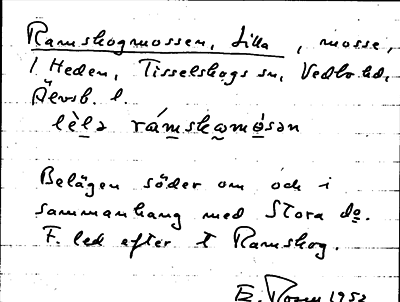 Ramskogmossen, Lilla, mosse,
1 Heden, Tisselskogs sn, Vedbo hd,
Älvsb. l.
lèlə rámskəmósən
Belägen söder om och i
sammanhang med Stora do.
F. led efter t Ramskog.
E. Rosen 1952